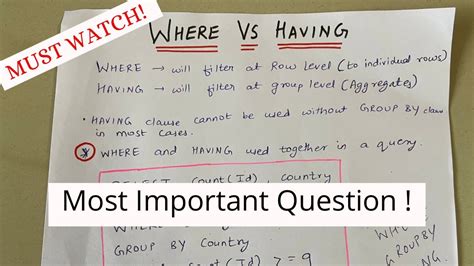 MUST WATCH!
WHERE VS HAVING
WHERE → will filter at Row level (to individual rows)
HAVING → will filter at group level (Aggregates)
• HAVING clause cannot be used without GROUP BY clause
in most cases.
WHERE and HAVING used together in a query.
SELECT count(Id), country
Most Important Question !
WHERE
GROUP BY Country
(Id) >= 9
GROUP BY